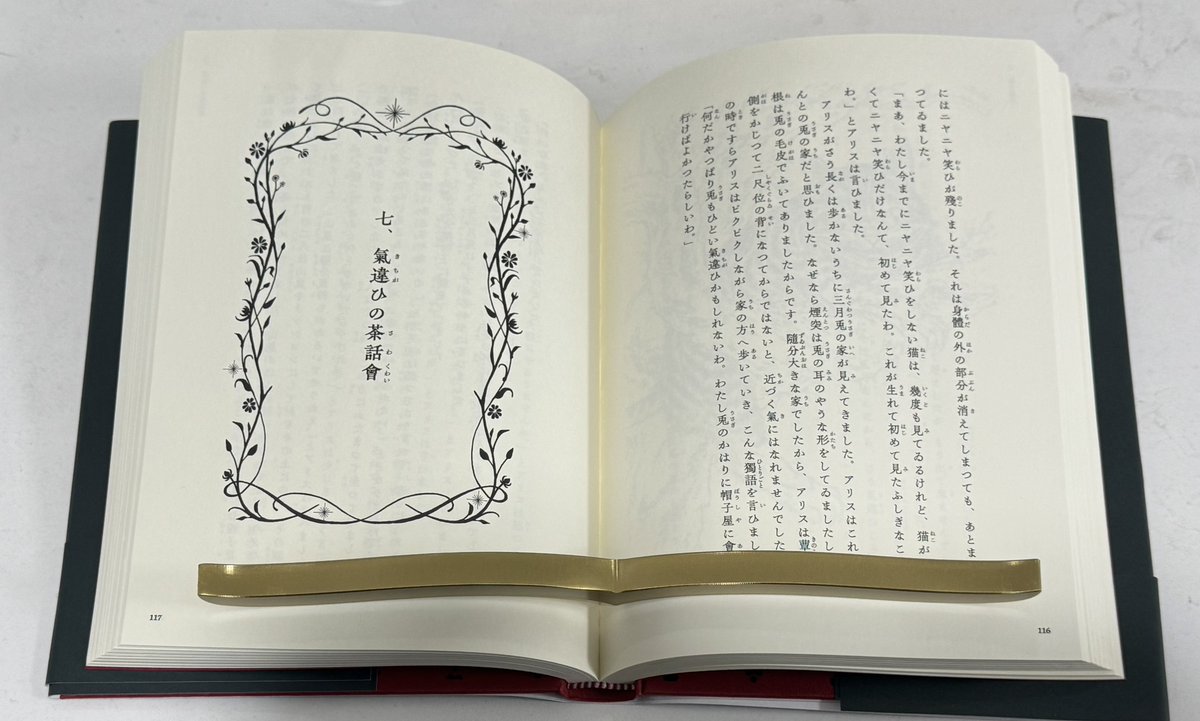 にはニヤニヤ笑ひが殘りました。それは身體の外の部分が消えてしまつても、あとま
つてゐました。
「まあ、わたし今までにニヤニヤ笑ひをしない猫は、幾度も見てゐるけれど、猫が
くてニヤニヤ笑ひだけなんて、初めて見たわ。これが生れて初めて見たふしぎなこ
わ。」とアリスは言ひました。
アリスがさう長くは歩かないうちに三月兎の家が見えてきました。アリスはこれ
んとの兎の家だと思ひました。なぜなら煙突は兎の耳のやうな形をしてゐましたし
根は兎の毛皮でふいてありましたからです。隨分大きな家でしたから、アリスは蕈
側をかじつて二尺位の背になつてからではないと、近づく氣にはなれませんでした
の時ですらアリスはビクビクしながら家の方へ歩いていき、こんな獨語を言ひまし
「何だかやつぱり兎もひどい氣違ひかもしれないわ。わたし兎のかはりに帽子屋に會
行けばよかつたらしいわ。」
116
七、氣違ひの茶話會
117